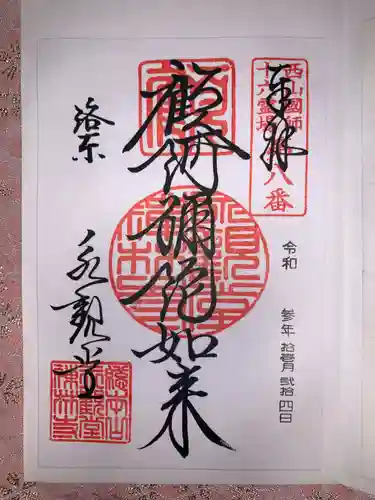 西山國師
十六霊場
第八番
奉拝
令和 参年 拾壹月 弐拾四日
顧佛
彌陀如来
洛東
永観堂